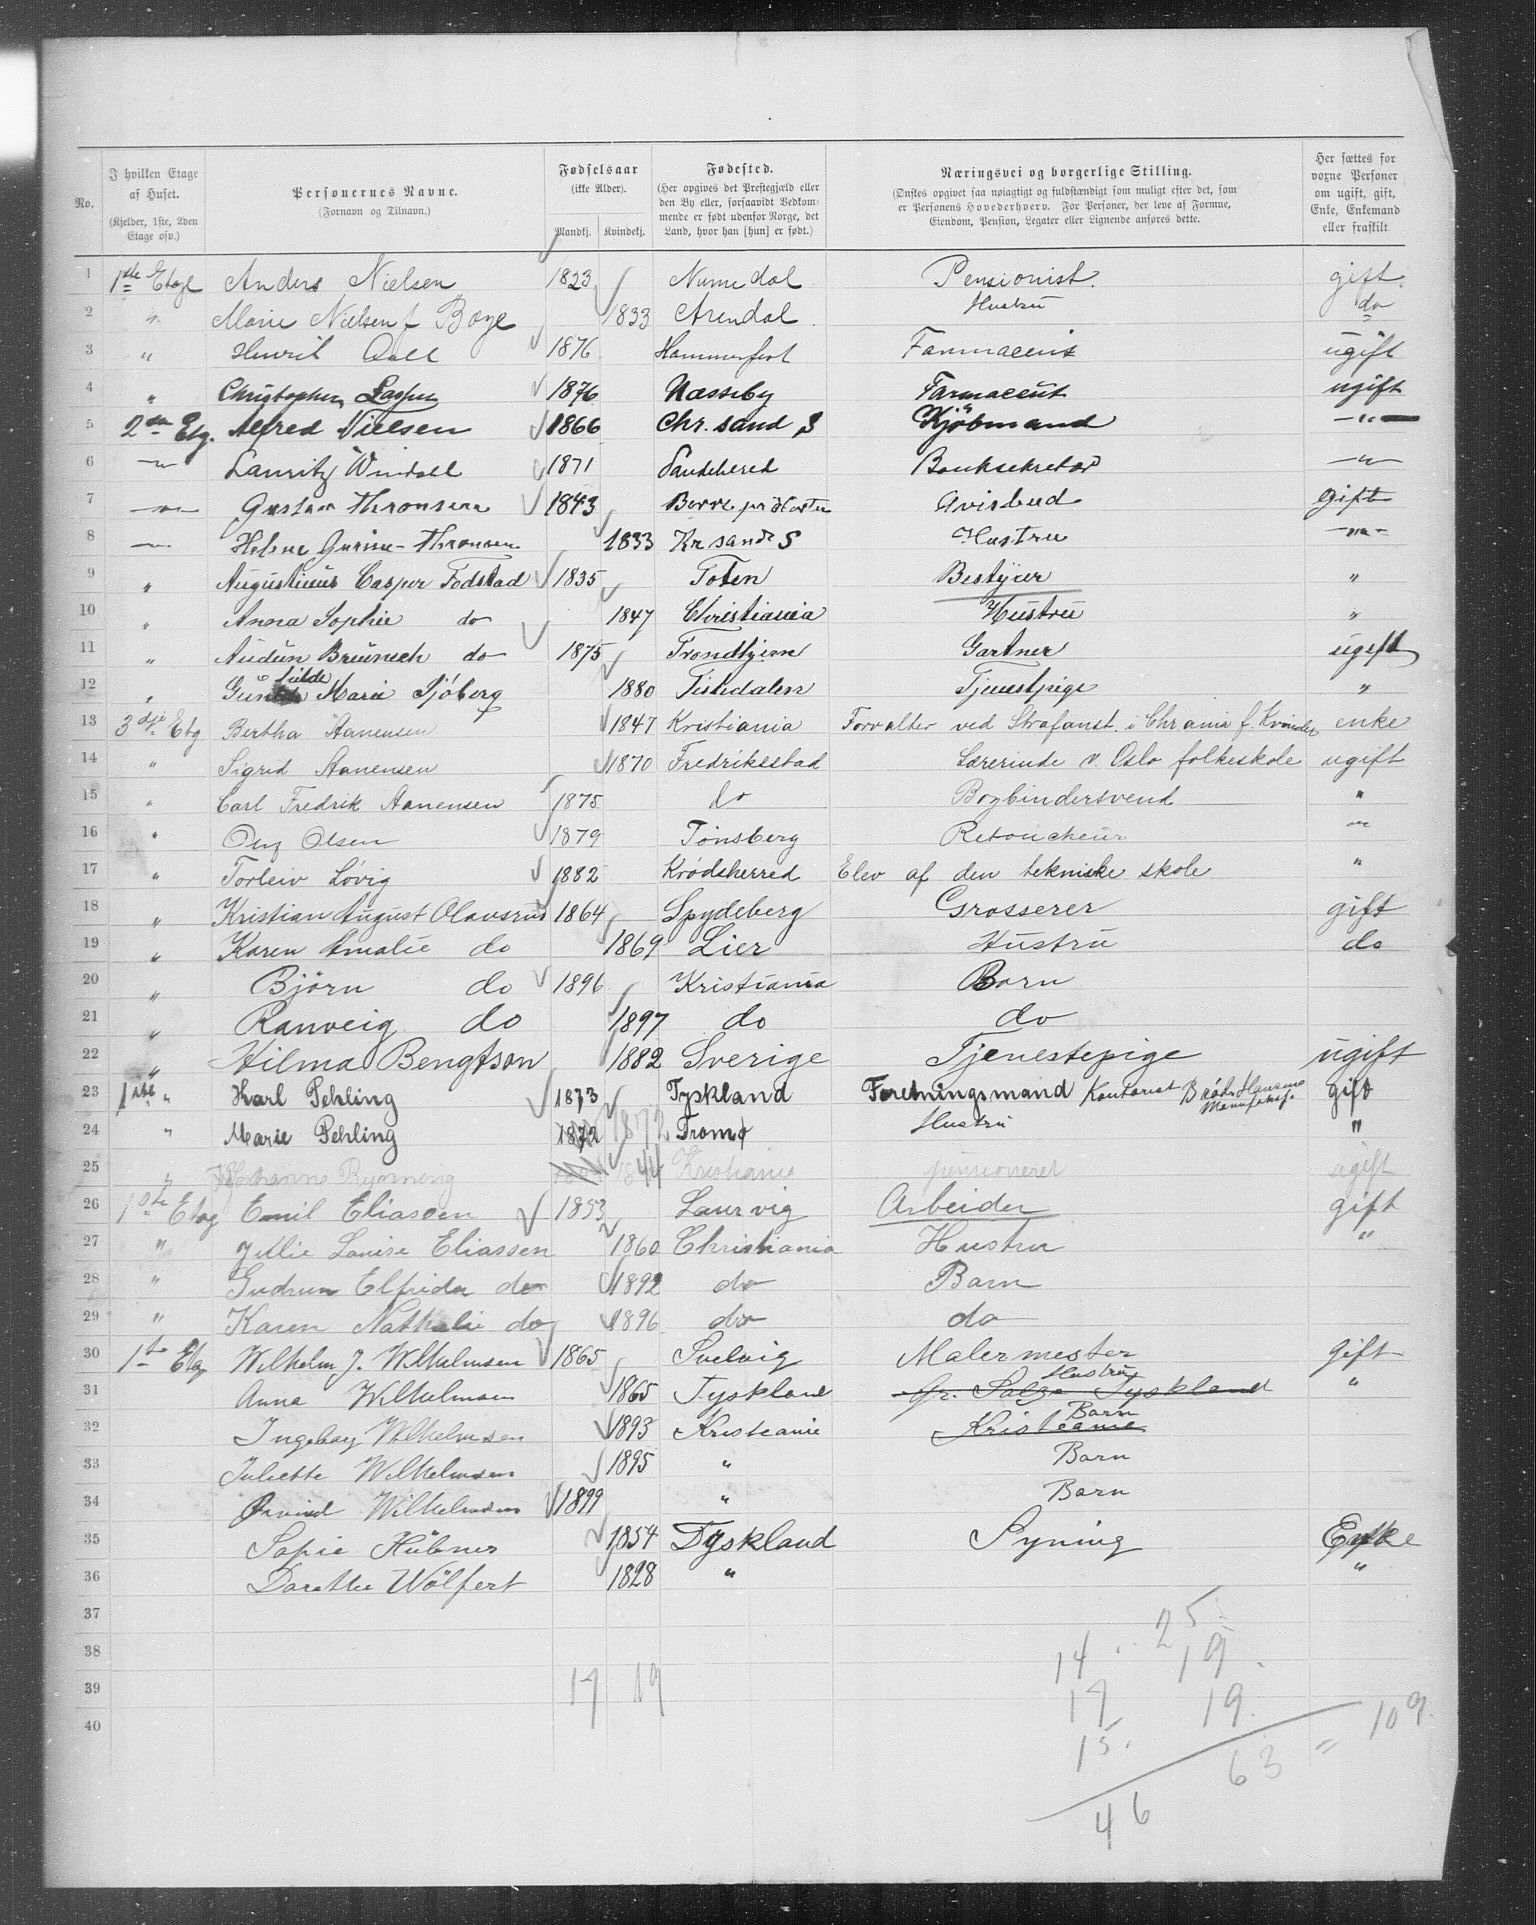 No. | I hvilken Etage af Huset. (Kjelder, 1ste, 2den Etage osv.) | Personernes Navne. (Fornavn og Tilnavn.) | Fødselsaar (ikke Alder). Mandkj. Kvindekj. | Fødested. (Her opgives det Prestegjæld eller den By eller, forsaavidt Vedkommende er født udenfor Norge, det Land, hvor han [hun] er født.) | Næringsvei og borgerlige Stilling. (Ønskes opgivet saa nøiagtigt og fuldstændigt som muligt efter det, som er Personens Hovederhverv. For Personer, der leve af Formue, Eiendom, Pension, Legater eller Lignende anføres dette. | Her sættes for voxne Personer om ugift, gift, Enke, Enkemand eller fraskilt
1 1ste Etage Anders Nielsen 1823 Numedal Pensionist. gift.
2 " Marie Nielsen f Boye 1833 Arendal Hustru do
3 " Henrik 1876 Hammerfest Farmaceut ugift
4 " Christopher 1876 Næsseby Farmaceut ugift
5 2den Etg. Alfred Nielsen 1866 Chr.sand S Kjøbmand —"—
6 —"— Lauritz Windall 1871 Sandehered Banksekretær —"—
7 —"— Gustav Thronsen 1843 Borre pr Horten Avisbud Gift
8 —"— Helene Gurine Thronsen 1833 Kr sand S Hustru —"—
9 " Augustinus Casper Fodstad 1835 Toten Bestyrer "
10 " Anna Sophie do 1847 Christiania Hustru "
11 " Audun Breunech do 1875 Trondhjem Gartner ugift
12 " Gunhilde Marie Sjøberg 1880 Tistedalen Tjenestpige "
13 3dje Etg Bertha Aanensen 1847 Kristiania Forvalter ved Strafanst. i Chrania f. Kvinder enke
14 " Sigrid Aanensen 1870 Fredrikstad Lærerinde v. Oslo folkeskole ugift
15 " Carl Fredrik Aanensen 1875 do Bogbindersvend "
16 " Olsen 1879 Tønsberg Retoucheur "
17 " Torleiv Løvig 1882 Krødsherred Elev af den tekniske skole "
18 " Kristian August Olavsrud 1864 Spydeberg Grosserer gift
19 " Karen Amalie do 1869 Lier Hustru do
20 " Bjørn do 1896 Kristiania Barn
21 " Ranveig do 1897 do do
22 " Hilma Bengtson 1882 Sverige Tjenestepige ugift
23 1ste " Karl Pehling 1873 Tyskland Foretningsmand Kontorist Brødr. Hansens Manufaktf. gift
24 " Marie Pehling 1872 1872 Tromø Hustru "
25 " Johanne Ryenning 1844 Kristiania pensioneret ugift
26 1ste Etag Emil Eliassen 1853 Laurvig Arbeider gift
27 " Jullie Louise Eliassen 1860 Christiania Hustru "
28 " Gudrun Elfrida do 1892 do Barn
29 " Karen Nathalie do 1896 do do
30 1ste Etg Wilhelm J. Wilhelmsen 1865 Svelvig Malermester gift
31 Anna Wilhelmsen 1865 Tyskland Gr. Salze Tyskland Hustru "
32 Ingeborg Wilhelmsen 1893 Kristiania Kristiania Barn
33 Juliette Wilhelmsen 1895 " Barn
34 Øivind Wilhelmsen 1899 " Barn
35 Sofie Hübner 1854 Tyskland Syning Enke
36 Dorothe Wölfert 1828 " "
37
38
39
40
17 19
14 . 25.
17 19.
15. 19.
46 63 = 109.